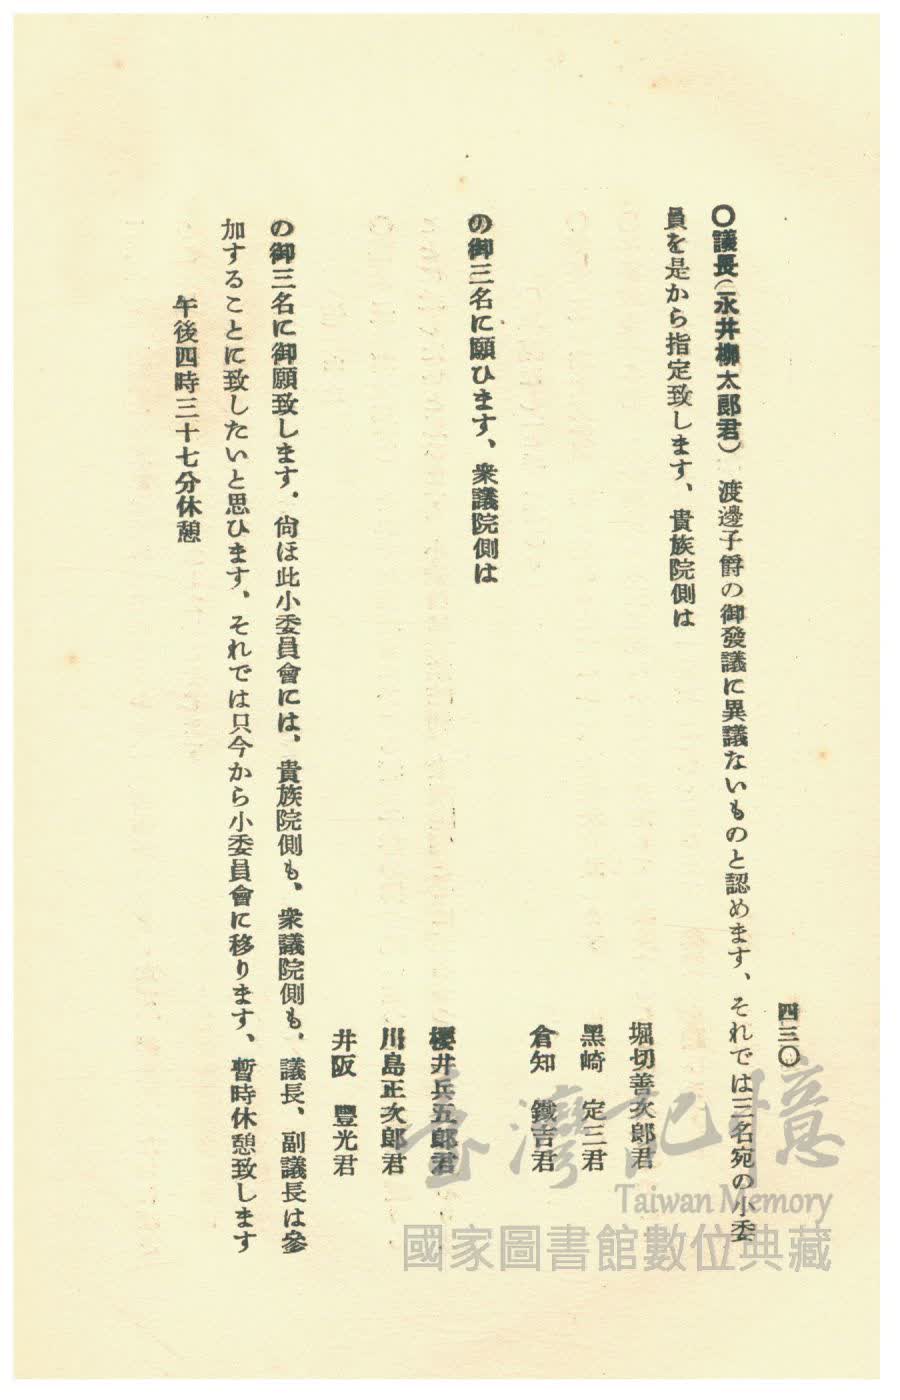 四三〇
〇議長(永井柳太郎君) 渡邊子爵の御發議に異議ないものと認めます、それでは三名宛の小委
員を是から指定致します、貴族院側は
堀切善次郎君
黑崎 定三君
倉知 鐵吉君
の御三名に願ひます、衆議院側は
櫻井兵五郎君
川島正次郎君
井阪 豐光君
の御三名に御願致します。尙ほ此小委員會には、貴族院側も、衆議院側も、議長、副議長は參
加することに致したいと思ひます、それでは只今から小委員會に移ります、暫時休憩致します
午後四時三十七分休憩
臺灣記憶
Taiwan Memory
國家圖書館數位典藏